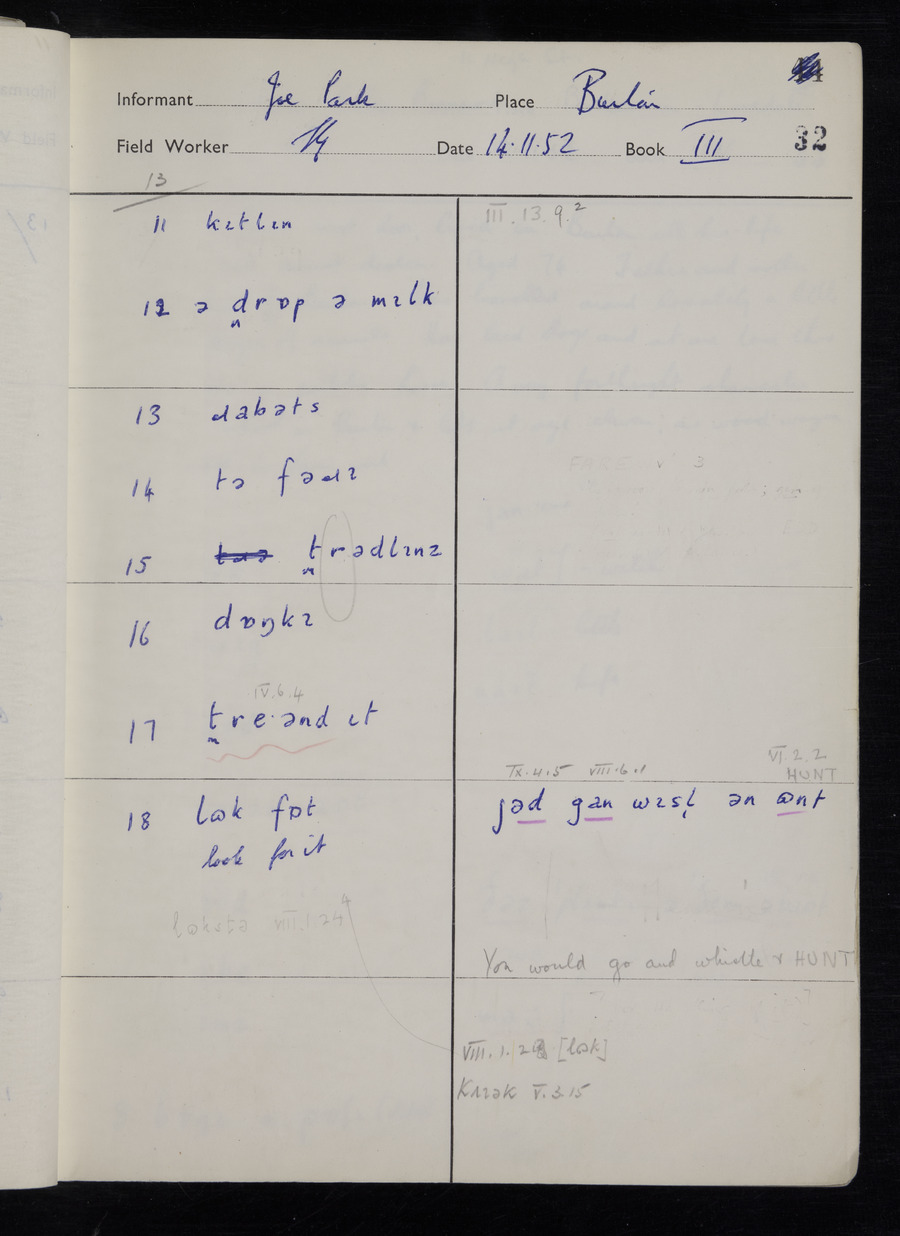 Informant Joe Park Place Burlin
32
Field Worker Date 14.11.52 Book III
13
11 kɪtlɪn
III.13.9.²
12 ə d̪rɒp ə mɪlk
13 dabəts
14 tə fədɪ
15 t̪rədlɪnz
16 dɒŋkɪ
IV.6.4
17 t̪re·ənd ɪt
IX.4.5 VIII.6.1
VI.2.2
HUNT
18 lɷk fɒt
jəd gan wɪsl̩ ən ɷnt
look for it
lɷkstə VIII.1.24
You would go and whistle & HUNT
VIII.1.2 [lɷk]
V.3.15